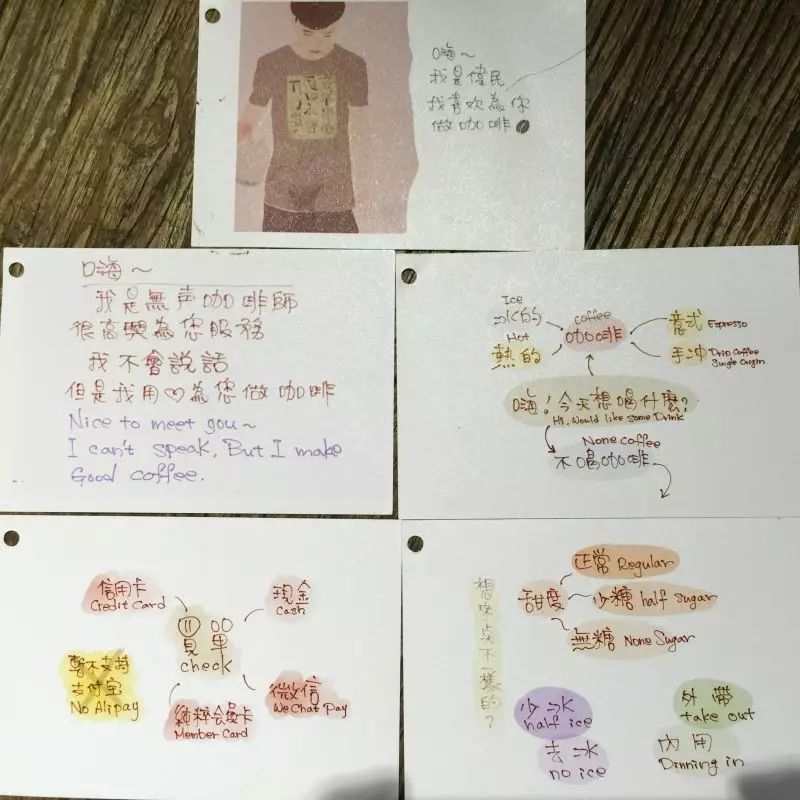 嗨～
我是偉民
我喜欢為你
做咖啡
嗨～
我是無声咖啡師
很高興為您服務
我不會説話
但是我用♡為您做咖啡
Nice to meet you~
I can't speak, But I make
Good coffee.
Ice
冰的
Hot
熱的
coffee
咖啡
意式 Espresso
手冲 Drip Coffee
Single Origin
嗨！今天想喝什麼？
Hi, Would like some Drink
None coffee
不喝咖啡
信用卡
Credit Card
現金
Cash
買單
check
暫不支持
支付宝
No Alipay
純粹会員卡
Member Card
微信
We Chat Pay
想來点不一樣的？
甜度
正常 Regular
少糖 half Sugar
無糖 None Sugar
少冰
half ice
去冰
no ice
外帶
take out
內用
Dinning in